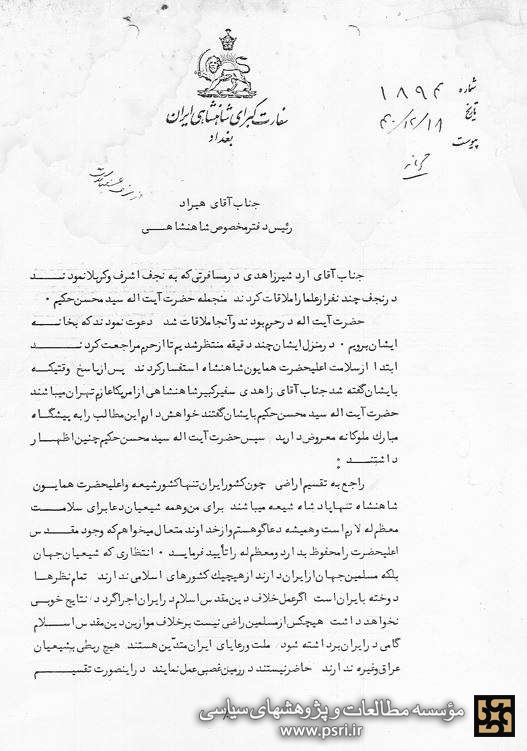 سفارت کبرای شاهنشاهی ایران
بغداد
شماره ۱۸۹۴
تاریخ ۴۰/۱۲/۱۸
پیوست
محرمانه
جناب آقای هیراد
رئیس دفتر مخصوص شاهنشاهی
جناب آقای اردشیر زاهدی در مسافرتی که به نجف اشرف و کربلا نمودند
در نجف چند نفر از علما را ملاقات کردند منجمله حضرت آیت اله سید محسن حکیم .
حضرت آیت اله در حرم بودند و آنجا ملاقات شد دعوت نمودند که بخانه
ایشان برویم . در منزل ایشان چند دقیقه منتظر شدیم تا از حرم مراجعت کردند
ابتدا از سلامت اعلیحضرت همایون شاهنشاه استفسار کردند پس از پاسخ وقتیکه
بایشان گفته شد جناب آقای زاهدی سفیر کبیر شاهنشاهی از امریکا عازم تهران میباشند
حضرت آیت اله سید محسن حکیم بایشان گفتند خواهش دارم این مطالب را به پیشگاه
مبارک ملوکانه معروض دارید سپس حضرت آیت اله سید محسن حکیم چنین اظهار
داشتند :
راجع به تقسیم اراضی چون کشور ایران تنها کشور شیعه و اعلیحضرت همایون
شاهنشاه تنها پادشاه شیعه میباشند برای من و همه شیعیان دعا برای سلامت
معظم له لازم است و همیشه دعاگو هستم و از خداوند متعال میخواهم که وجود مقدس
اعلیحضرت را محفوظ بدارد و معظم له را تأیید فرماید . انتظاری که شیعیان جهان
بلکه مسلمین جهان از ایران دارند از هیچیک کشورهای اسلامی ندارند تمام نظرها
دوخته بایران است اگر عمل خلاف دین مقدس اسلام در ایران اجرا گردد نتایج خوبی
نخواهد داشت هیچکس از مسلمین راضی نیست برخلاف موازین دین مقدس اسلام
گامی در ایران برداشته شود ملت و رعایای ایران متدین هستند هیچ ربطی بشیعیان
عراق و غیره ندارند حاضر نیستند در زمین غصبی عمل نمایند در اینصورت تقسیم
مؤسسه مطالعات و پژوهشهای سیاسی
www.psri.ir